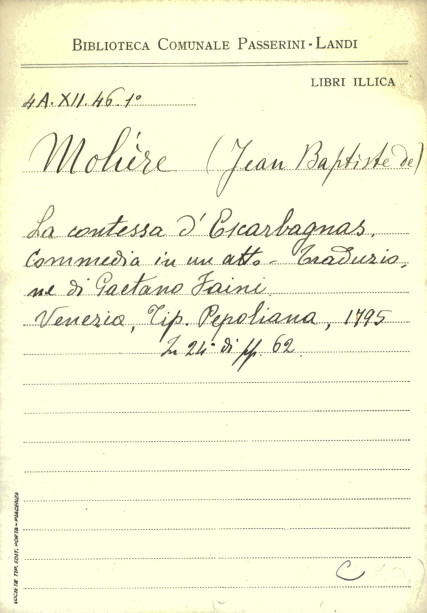 BIBLIOTECA COMUNALE PASSERINI-LANDI
LIBRI ILLICA
4A.XII.46.1º
Molière (Jean Baptiste de)
La contessa d'Escarbagnas.
Commedia in un atto - Traduzio,
ne di Gaetano Faini
Venezia, Tip. Pepoliana, 1795
In 24º di pp. 62
C
SOCIETÀ TIP. EDIT. PORTA - PIACENZA